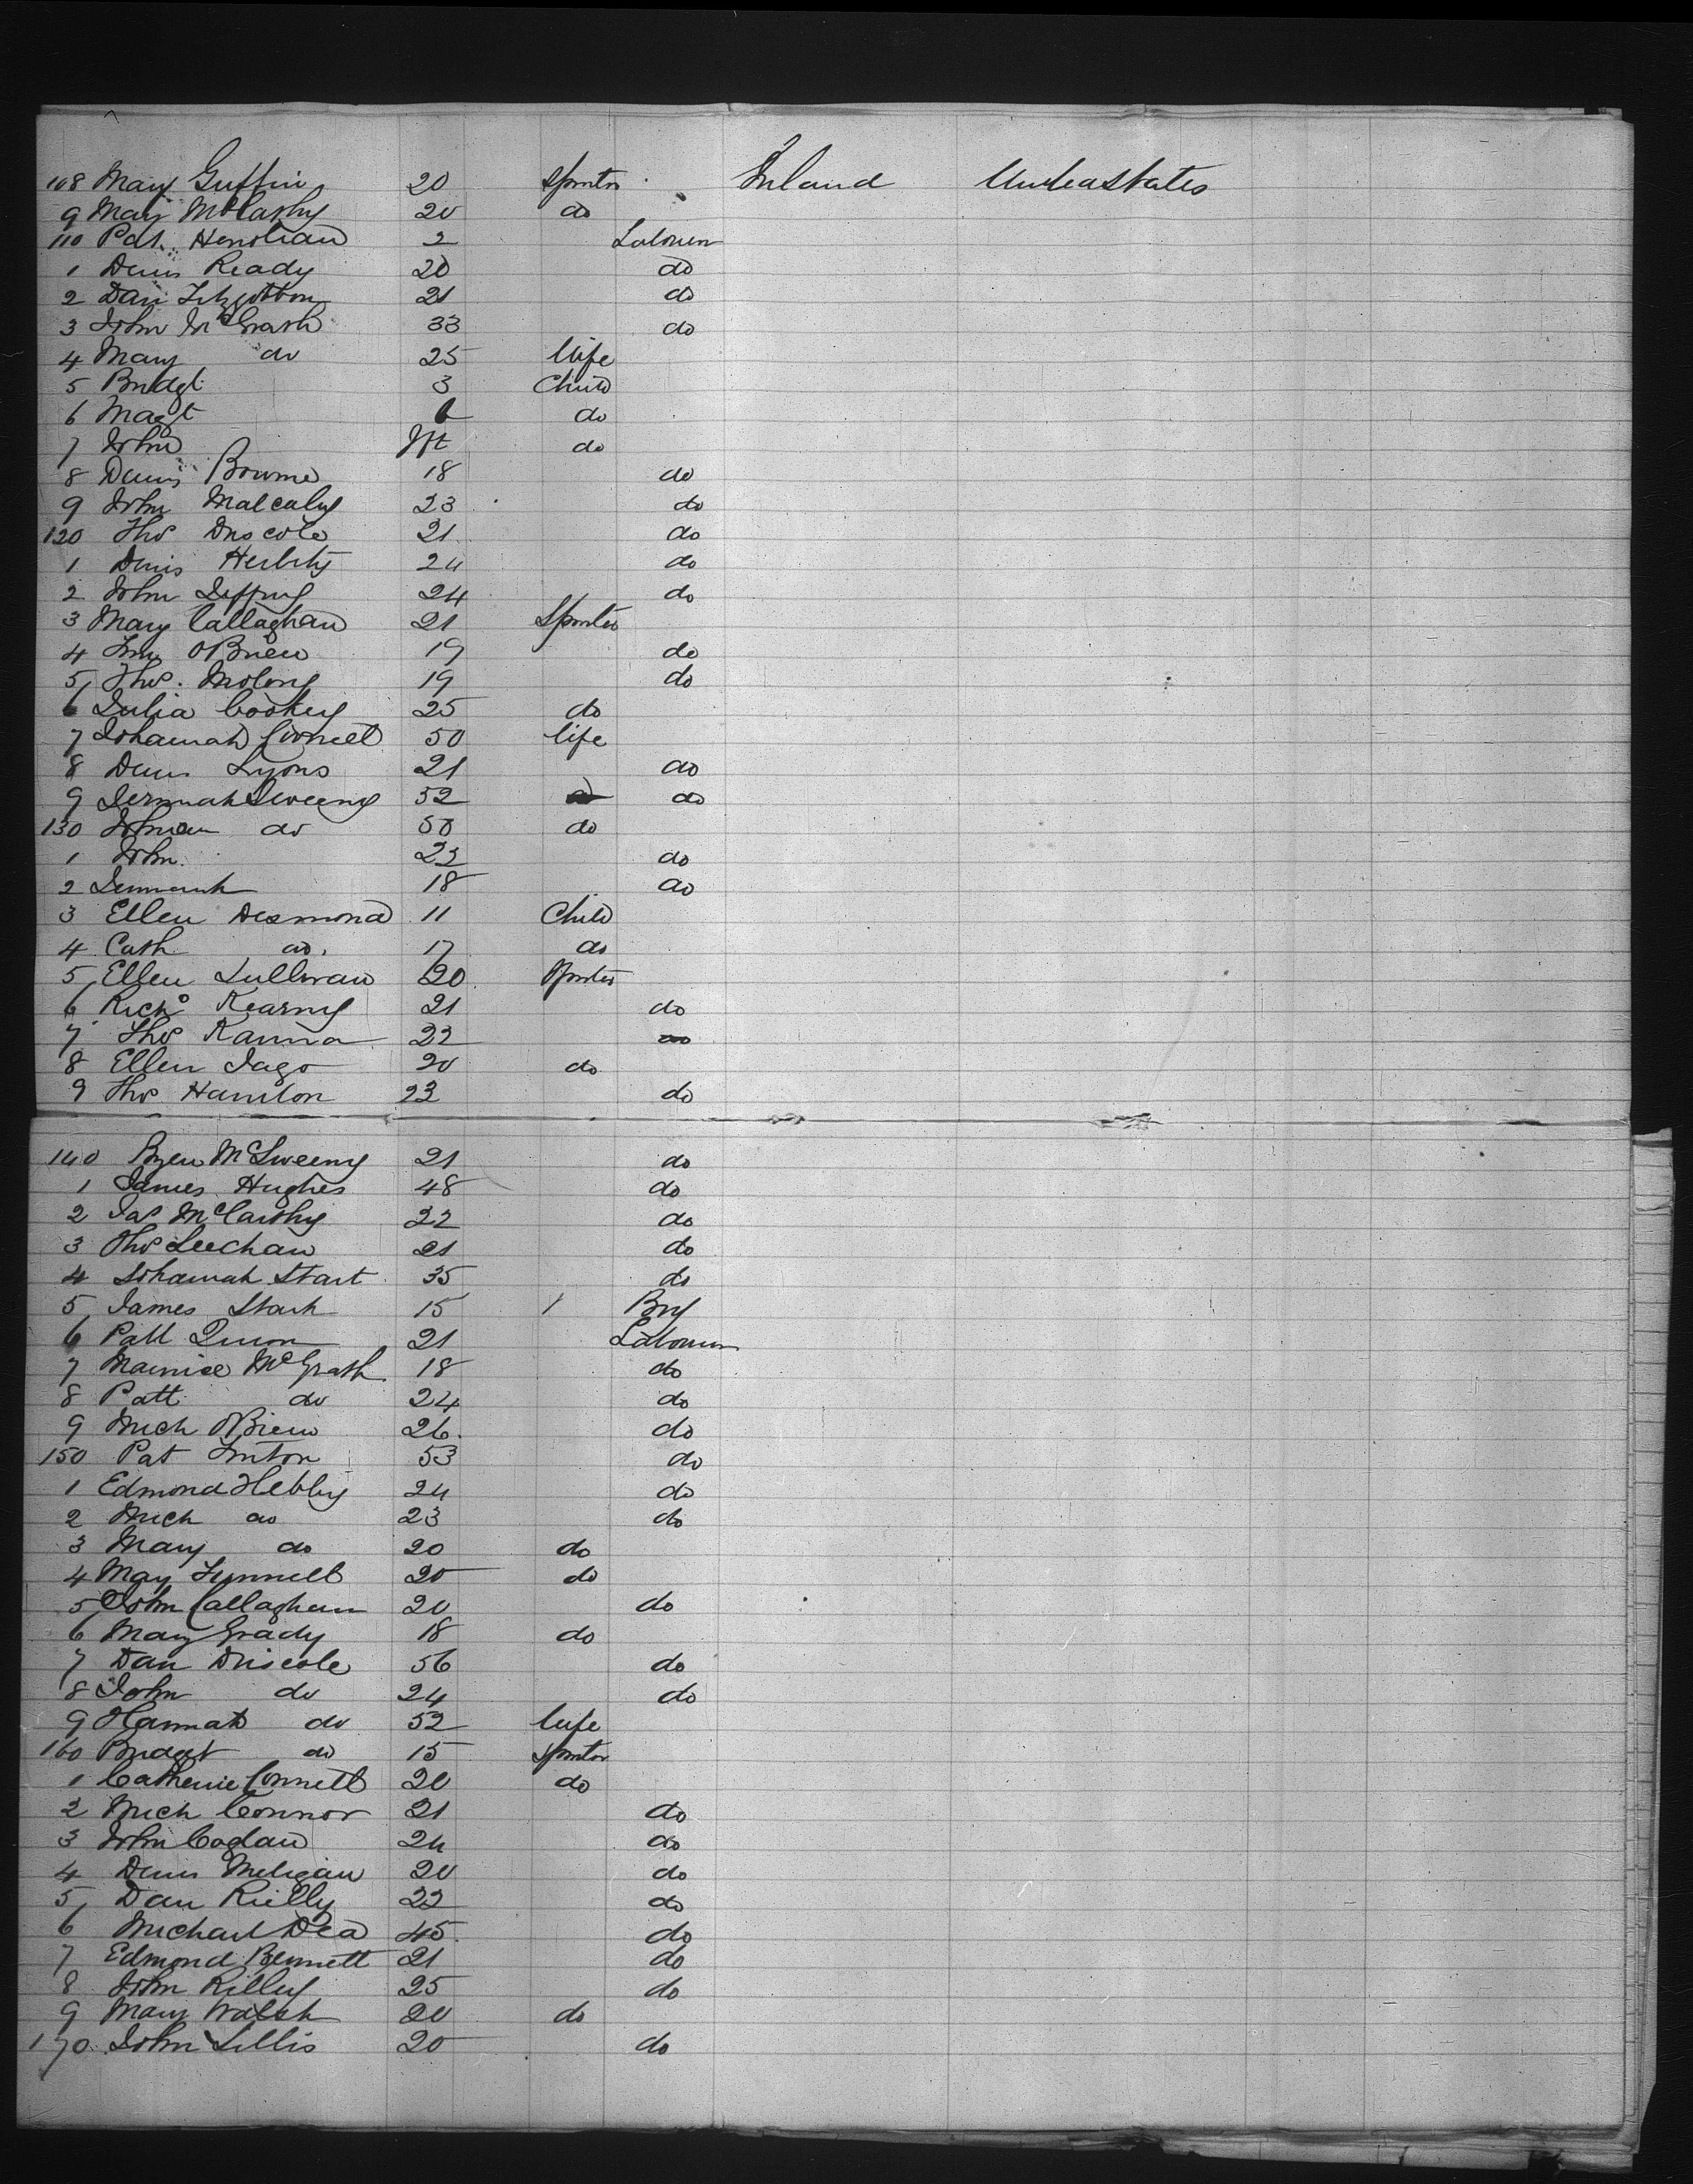 108 Mary Guffin 20 Spinster Ireland United States
9 Mary McCarthy 20 do
110 Pat. Henohan 2 Labourer
1 Denis Ready 20 do
2 Dan Fitzgibbon 21 do
3 John McGrath 33 do
4 Mary do 25 Wife
5 Bridgt 3 Child
6 Magt do
7 John Ift do
8 Denis Bourne 18 do
9 John Malcahy 23 do
120 Thos Driscole 21 do
1 Denis Herlity 24 do
2 John Jeffrey 24 do
3 Mary Callaghan 21 Spinster
4 Jno OBrien 19 do
5 Thos. Molony 19 do
6 Julia Cookey 25 do
7 Johannah Connell 50 Wife
8 Denis Lyons 21 do
9 Jeremiah Sweeny 52 do
130 Johan do 50 do
1 John 22 do
2 Jeremiah 18 do
3 Ellen Desmond 11 Child
4 Cath do. 17 do
5 Ellen Sullivan 20 Spinster
6 Richd Kearny 21 do
7 Thos 22 do
8 Ellen Jago 20 do
9 Thos Hanlon 23 do
140 Byen McSweeny 21 do
1 James Hughes 48 do
2 Jas McCarthy 22 do
3 Thos Leechan 21 do
4 Johannah Start 35 do
5 James Stark 15 1 Boy
6 Patt Quion 21 Labourer
7 Maurice McGrath 18 do
8 Patt do 24 do
9 Mich OBrien 26. do
150 Pat Linton 53 do
1 Edmond Hebby 24 do
2 Mich do 23 do
3 Mary do 20 do
4 Mary Funnell 20 do
5 John Callaghan 20 do
6 Mary Grady 18 do
7 Dan Driscole 56 do
8 John do 24 do
9 Hannah do 52 Wife
160 Bridget do 15 Spinster
1 Catherine Connell 20 do
2 Mich Connor 21 do
3 John Coglan 24 do
4 Denis Meligan 20 do
5 Dan Rielly 22 do
6 Michael Dea 45. do
7 Edmond Bennett 21 do
8 John Killey 25 do
9 Mary Walsh 20 do
170 John Lillis 20 do